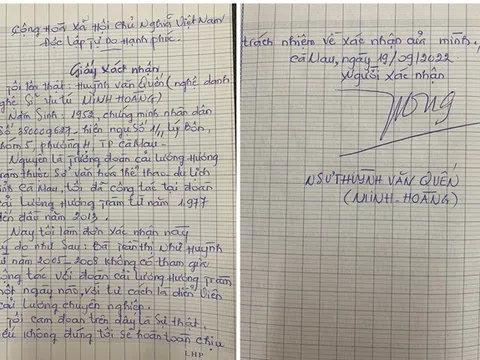 Cộng Hoà Xã Hội Chủ Nghĩa Việt Nam
Độc Lập Tự Do Hạnh phúc.
Giấy xác nhận
Tôi tên thật: Huỳnh Văn Quến (nghệ danh
nghệ sĩ ưu tú MINH HOÀNG)
Năm Sinh: 1952, chứng minh nhân dân
Số 380009627 - hiện ngụ Số 1/1, Lý Bôn,
khóm 5, phường 4, TP Cà Mau -
Nguyên là Trưởng đoàn cải lương Hương
Tràm thuộc Sở văn hóa thể thao du lịch
tỉnh Cà Mau, tôi đã công tác tại đoàn
cải lương Hương Tràm từ năm 1977
đến đầu năm 2013.
Nay tôi làm đơn xác nhận này
lý do như sau: Bà Trần Thị Như Huỳnh
từ năm 2005-2008 không có tham gia
công tác với đoàn cải lương Hương Tràm
một ngày nào, với tư cách là diễn viên
cải lương chuyên nghiệp.
Tôi cam đoan trên đây là Sự thật.
nếu không đúng tôi sẽ hoàn toàn chịu
trách nhiệm về xác nhận của mình.
Cà Mau, ngày 19/09/2022
Người xác nhận
NSƯT HUỲNH VĂN QUẾN
(MINH-HOÀNG)